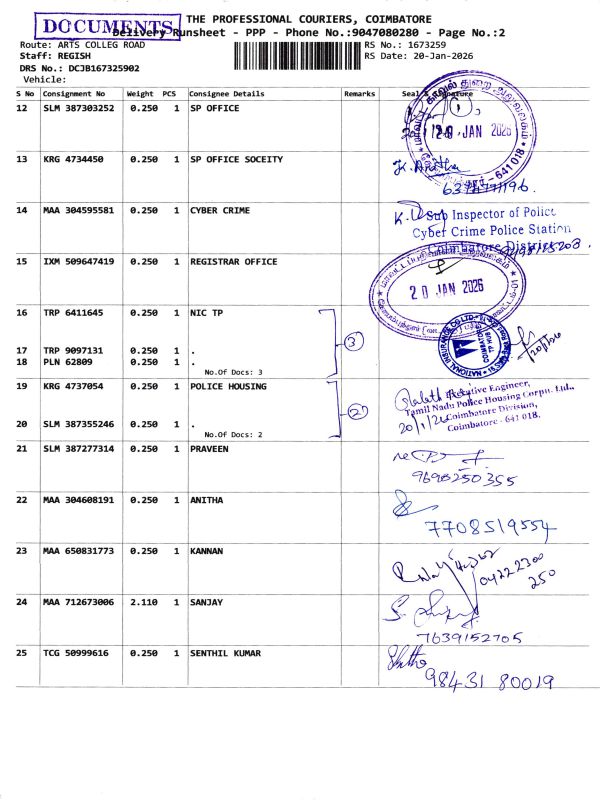 DOCUMENTS
THE PROFESSIONAL COURIERS, COIMBATORE
Delivery Runsheet - PPP - Phone No.:9047080280 - Page No.:2
Route: ARTS COLLEG ROAD
RS No.: 1673259
Staff: REGISH
RS Date: 20-Jan-2026
DRS No.: DCJB167325902
Vehicle:
S No Consignment No Weight PCS Consignee Details Remarks Seal & Signature
12 SLM 387303252 0.250 1 SP OFFICE
20 JAN 2026
641 018
13 KRG 4734450 0.250 1 SP OFFICE SOCEITY
14 MAA 304595581 0.250 1 CYBER CRIME
Sub Inspector of Police
Cyber Crime Police Station
Coimbatore District
15 IXM 509647419 0.250 1 REGISTRAR OFFICE
20 JAN 2026
16 TRP 6411645 0.250 1 NIC TP
3
17 TRP 9097131 0.250 1 .
18 PLN 62809 0.250 1 .
No.Of Docs: 3
NATIONAL INSURANCE CO. LTD.
20/1/26
19 KRG 4737054 0.250 1 POLICE HOUSING
2
Executive Engineer,
Tamil Nadu Police Housing Corpn. Ltd.,
20/1/26 Coimbatore Division,
Coimbatore - 641 018.
20 SLM 387355246 0.250 1 .
No.Of Docs: 2
21 SLM 387277314 0.250 1 PRAVEEN
9698250355
22 MAA 304608191 0.250 1 ANITHA
7708519554
23 MAA 650831773 0.250 1 KANNAN
04222300
250
24 MAA 712673006 2.110 1 SANJAY
7639152705
25 TCG 50999616 0.250 1 SENTHIL KUMAR
98431 80019